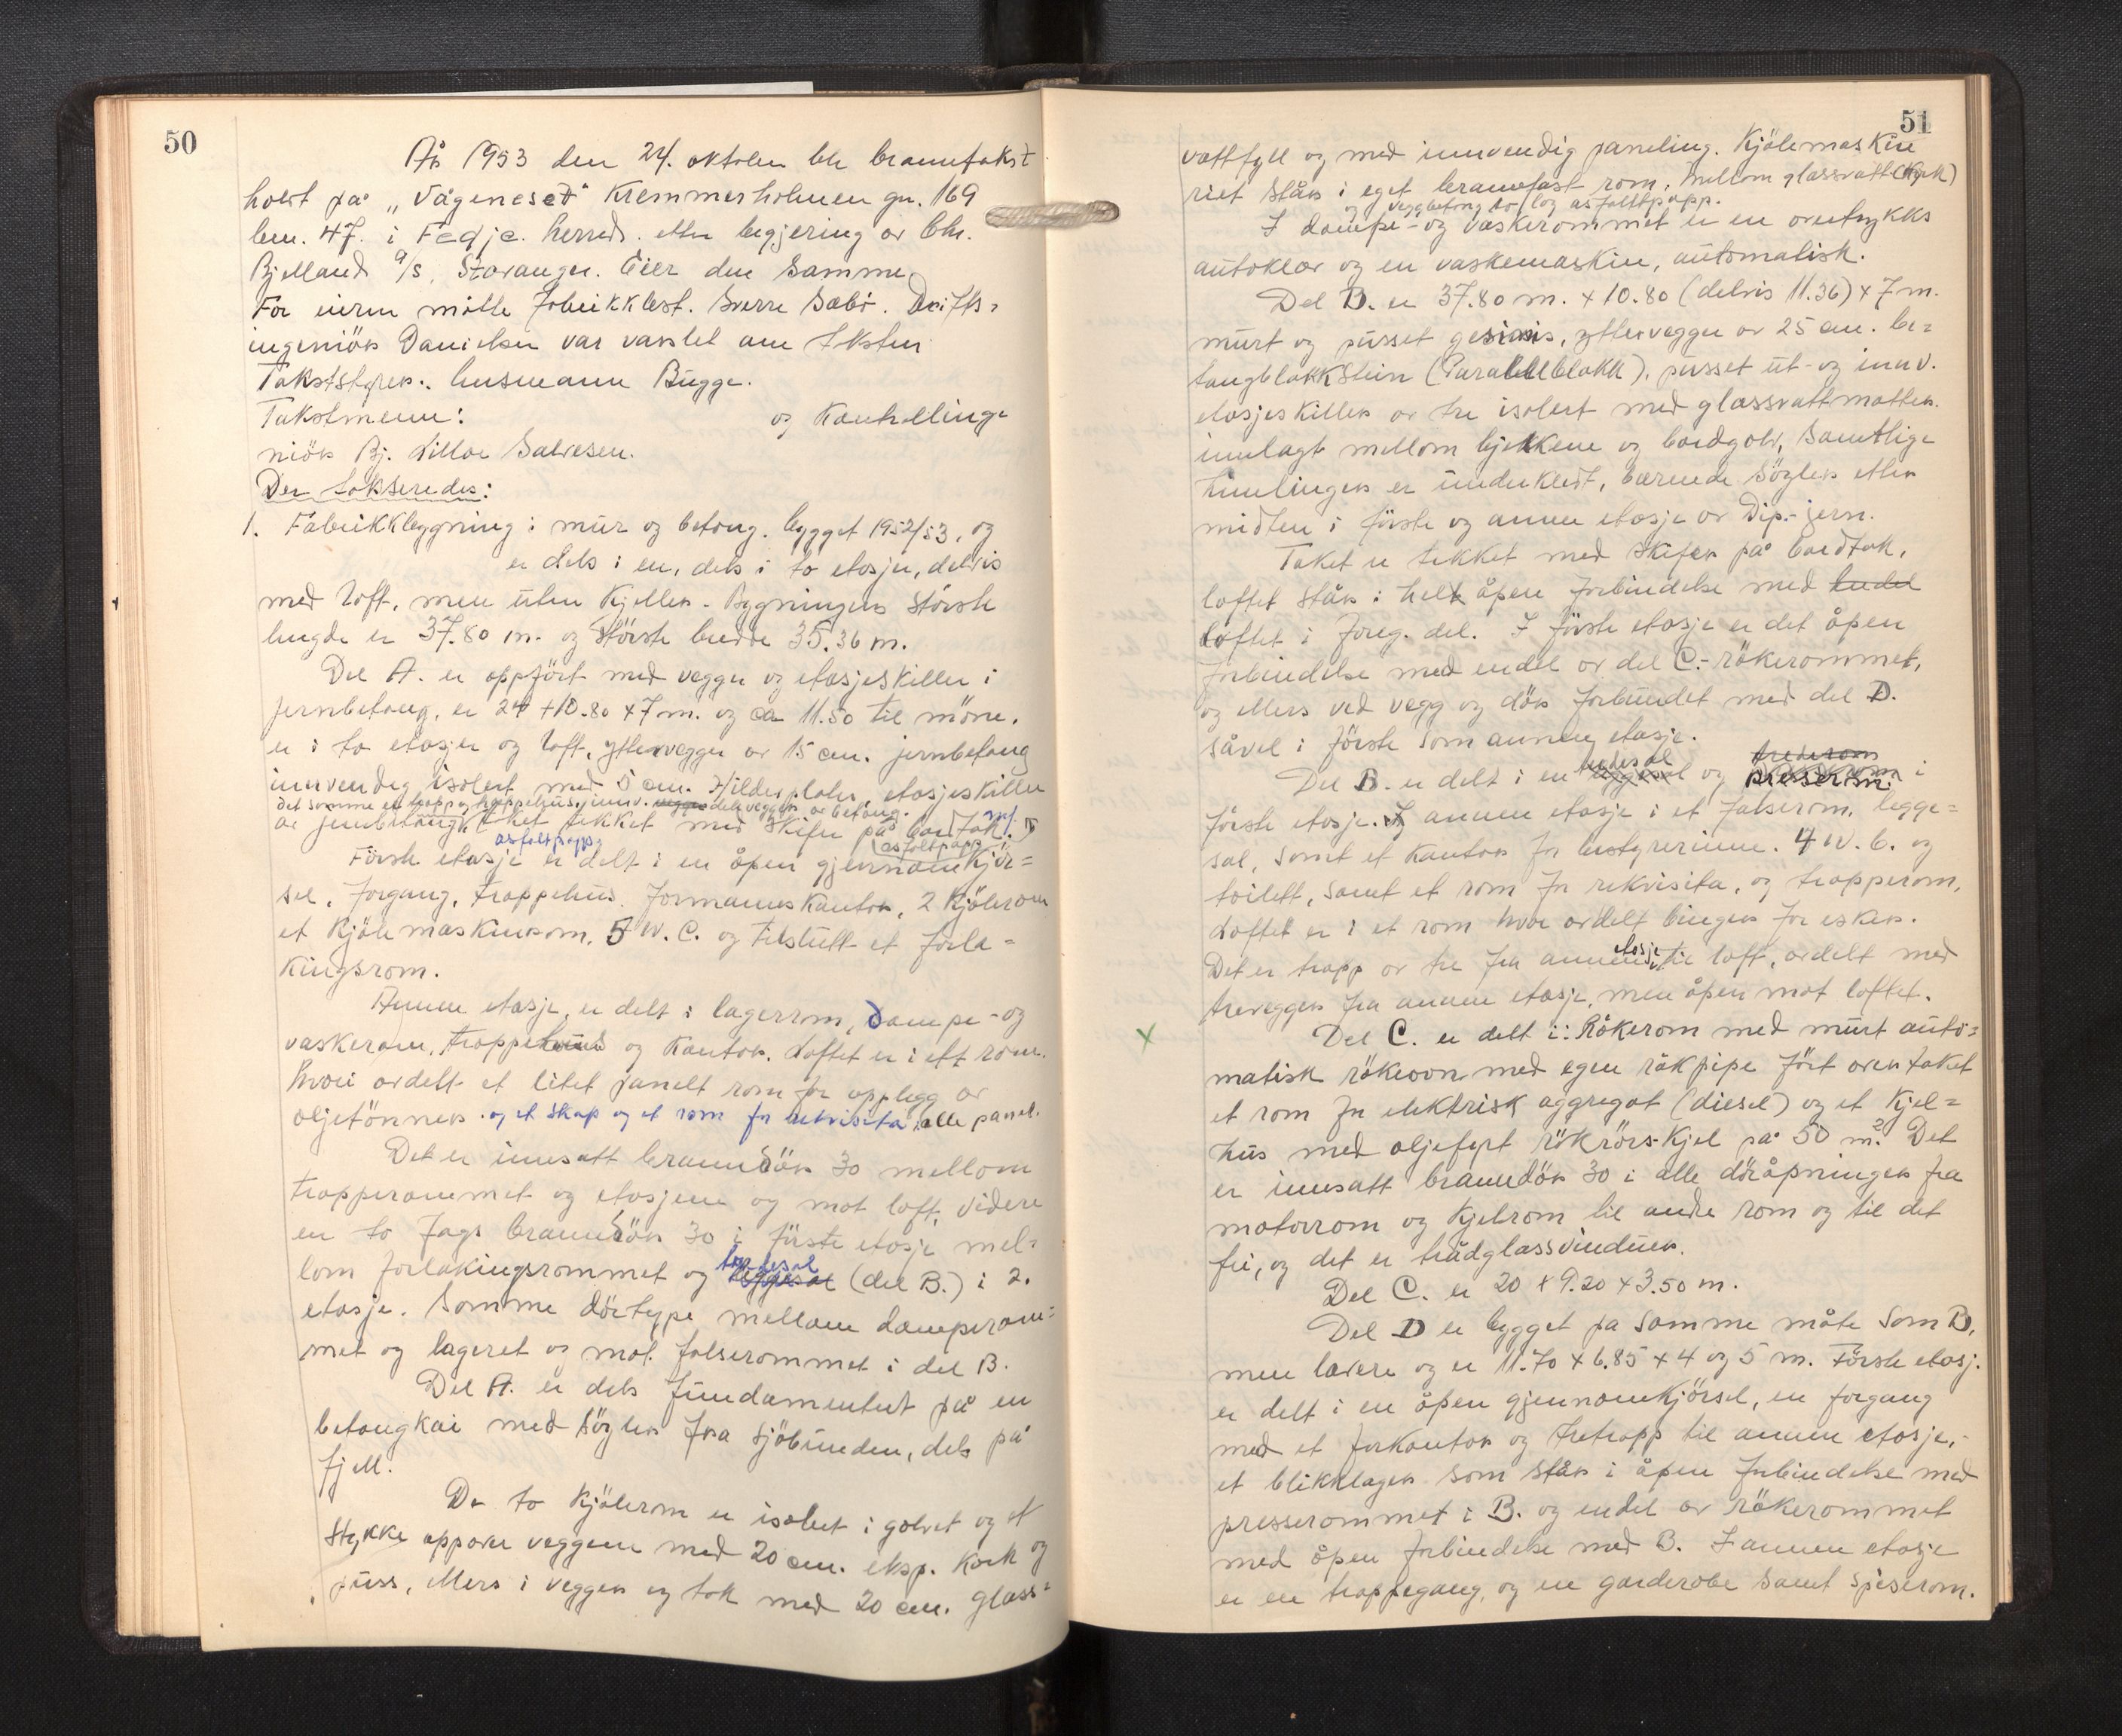 50
År 1953 den 24. oktober ble branntakst
holdt på „Vågeneset" Kremmerholmen gn. 169
bn. 47. i Fedje herred. etter begjering av Chr.
Bjelland A/S, Stavanger. Eier den samme.
For eieren møtte fabrikkbest. Sverre Sæbö. Drifts-
ingeniör Danielsen var varslet om taksten
Takststyrer: lensmann Bugge.
Takstmenn: og Kontrollinge
niör Bj. Lilloe Salvesen.
Der takseredes:
1. Fabrikkbygning i mur og betong. bygget 1952/53, og
er dels i en, dels i to etasjer, delvis
med loft, men uten kjeller. Bygningens störste
lengde er 37.80 m. og störste bredde 35.36 m.
Del A. er oppfört med vegger og etasjeskiller i
jernbetong, er 24 + 10.80 x 7 m. og ca 11.50 til möne.
er i to etasjer og loft, yttervegger av 15 cm. jernbetong
innvendig isolert med 5 cm. plater, etasjeskiller
det samme er trapp og trappehus, innv. delevegger av betong.
av jernbetong taket tekket med skifer på bordtak.
asfaltpapp
asfaltpapp
Förste etasje er delt i en åpen gjennomkjör-
sel, forgang, trappehus, formannskontor, 2 kjölerom
et kjölemaskinrom, 5 W.C. og tilslutt et forla-
kingsrom.
Annen etasje, er delt i lagerrom, dampe- og
vaskerom, trappehus og kontor. Loftet er i ett rom.
hvori avdelt et litet panelt rom for opplegg av
oljetönner. og et skap og et rom for rekvisita, alle panel.
Det er innsatt branndör 30 mellom
trapperommet og etasjene og mot loft, videre
en to fags branndör 30 i förste etasje mel-
lom forlakingsrommet og leggesal (del B.) i 2.
etasje. Samme dörtype mellom damperom-
met og lageret og mot falserommet i del B.
Del A. er dels fundamentert på en
betongkai med söyler fra sjöbunden, dels på
fjell.
De to kjölerom er isolert i golvet og et
stykke oppover veggene med 20 cm. eksp. kork og
puss, ellers i vegger og tak med 20 cm. glass-
51
vattfyll og med innvendig paneling. Kjölemaskine
riet står i eget brannfast rom. Mellom glassvatt (kork)
og veggbetong to lag asfaltpapp.
I dampe- og vaskerommet er en overtrykks
autoklav og en vaskemaskin, automatisk.
Del B. er 37.80 m. x 10.80 (delvis 11.36) x 7 m.
murt og pusset gesims, yttervegger av 25 cm. be-
tongblokkstein (Parallellblokk), pusset ut- og innv.
etasjeskiller av tre isolert med glassvattmatter
innlagt mellom bjelkene og bordgolv, samtlige
himlinger er underkledt, bærende söyler etter
midten i förste og annen etasje av Dip.-jern.
Taket er tekket med skifer på bordtak,
loftet står i helt åpen forbindelse med
loftet i foreg. del. I förste etasje er det åpen
forbindelse med endel av del C.- rökerommet,
og ellers ved vegg og dör forbundet med del D.
såvel i förste som annen etasje.
Del B. er delt i en tredesal og presserom i
trederom
förste etasje. I annen etasje i et falserom, legge-
sal, samt et kontor for bestyrerinne. 4 W.C. og
toilett, samt et rom for rekvisita, og trapperom,
Loftet er i et rom hvor avdelt binger for esker.
Det er trapp av tre fra annen etasje til loft, avdelt med
trevegger fra annen etasje, men åpen mot loftet.
x Del C. er delt i: Rökerom med murt auto-
matisk rökeovn med egen rökpipe fört over taket
et rom for elektrisk aggregat (diesel) og et kjel-
hus med oljefyrt rökrörs-kjel på 50 m². Det
er innsatt branndör 30 i alle döråpninger fra
motorrom og kjelrom til andre rom og til det
fri, og det er trådglassvinduer.
Del C. er 20 x 9.20 x 3.50 m.
Del D er bygget på samme måte som B,
men lavere og er 11.70 x 6.85 x 4 og 5 m. Förste etasj.
er delt i en åpen gjennomkjörsel, en forgang
med et forkontor og tretrapp til annen etasje,-
et blikklager som står i åpen forbindelse med
presserommet i B. og endel av rökerommet
med åpen forbindelse med B. I annen etasje
er en trappegang, og en garderobe samt spiserom.